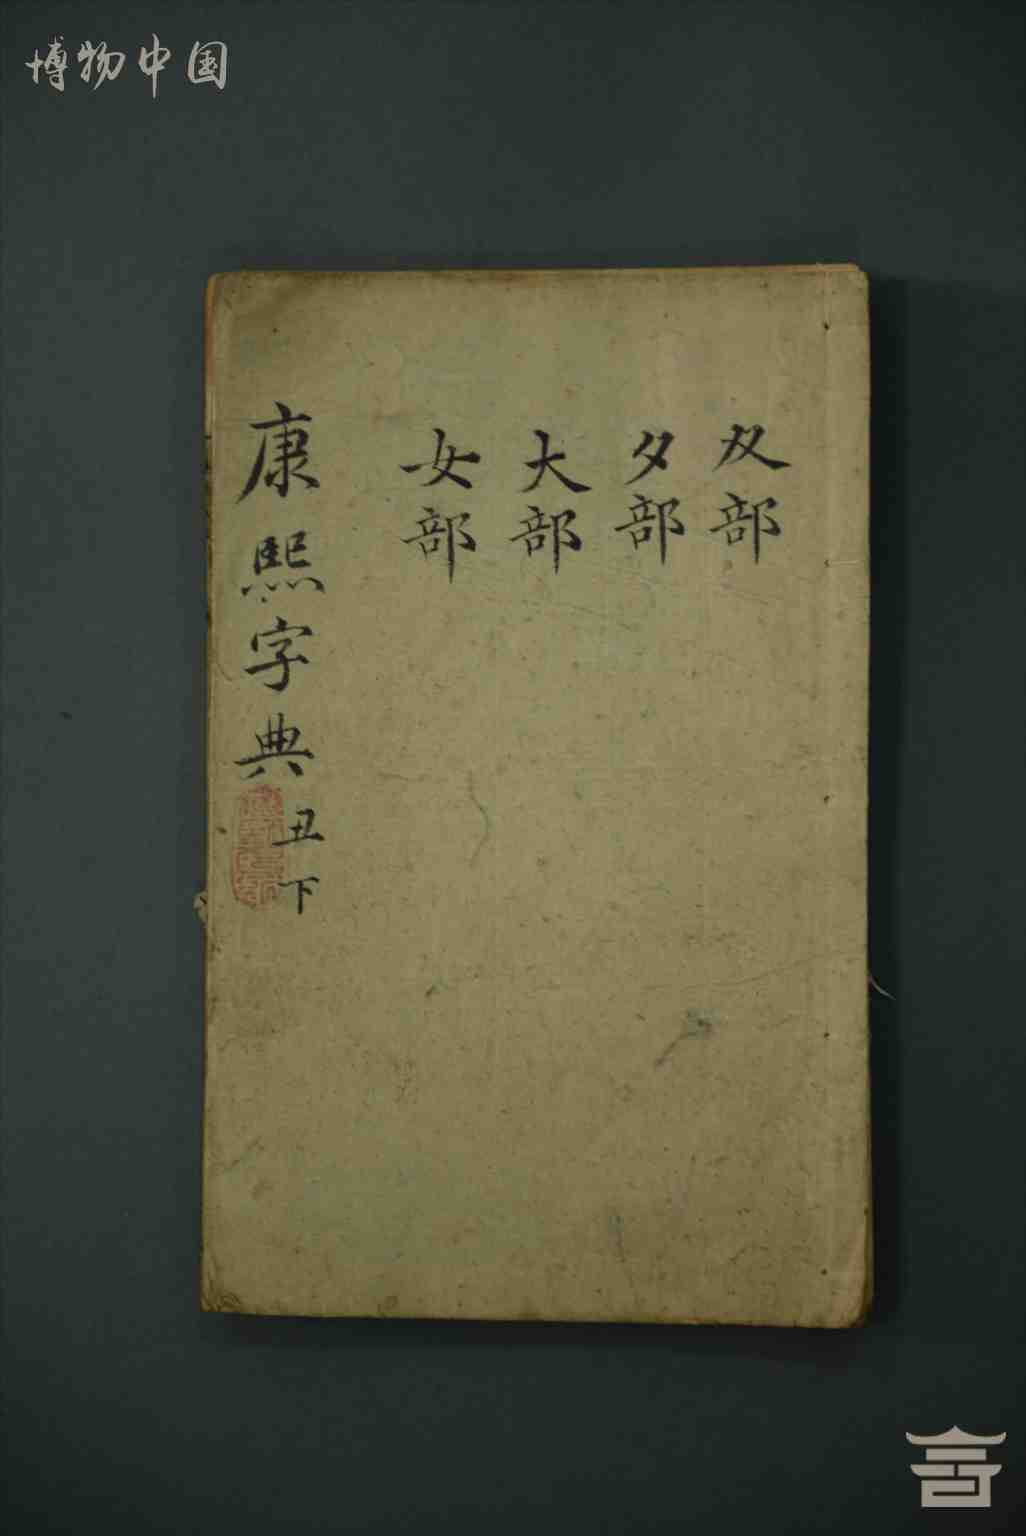 博物中国
夊部
夕部
大部
女部
康熙字典
丑下